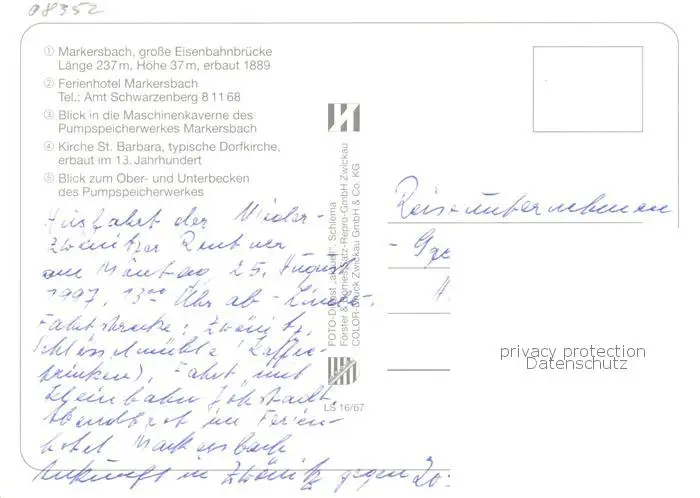 08352
① Markersbach, große Eisenbahnbrücke
Länge 237 m, Höhe 37 m, erbaut 1889
② Ferienhotel Markersbach
Tel.: Amt Schwarzenberg 8 11 68
③ Blick in die Maschinenkaverne des
Pumpspeicherwerkes Markersbach
④ Kirche St. Barbara, typische Dorfkirche,
erbaut im 13. Jahrhundert
⑤ Blick zum Ober- und Unterbecken
des Pumpspeicherwerkes
Ausfahrt der Nieder-
zwönitzer Rentner
am Montag 25. August
1997, 13⁰⁰ Uhr ab
Fahrtstrecke: Zwönitz,
Schlossmühle (Kaffee-
trinken), Fahrt mit
Kleinbahn Jöhstadt,
Abendbrot im Ferien-
hotel Markersbach
Ankunft in Zwönitz gegen 20
FOTO-Dienst „aktuell", Schlema
Förster & Borries Satz-Repro-GmbH Zwickau
COLOR-Druck Zwickau GmbH & Co. KG
LS 16/67
Reiseunternehmen
privacy protection
Datenschutz